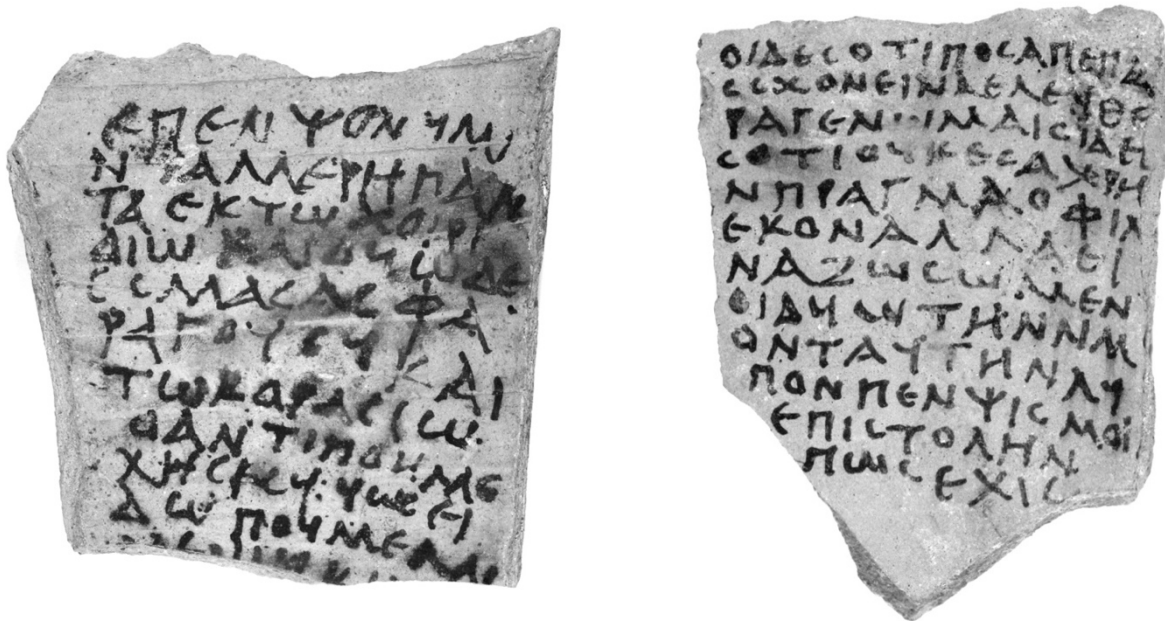 ΕΠΕΝΨΟΝΥΜΥ
Ν ΤΑΛΛΕΡΗΠΑΝ
ΤΑΕΚΤΩΧΟΙΡΙ
ΔΙΩ ΩΔΕ
ϹϹΜΑϹΑϹΦΑ
ΡΑΓΟΥϹΟΥ ΚΑΙ
ΤΩΚΟΡΑϹΙΩ
ΟΑΝΤΙΠΟΥΜΕ
ΧΗϹ ΕΙ
ΔΩΠΟΥΜΕΜΙ
ΟΙΔΕϹΟΤΙΠΟϹΑΠΕΠΔ
ϹϹΧΟΝΕΙΝΑΕΛΕΥΘΕ
ΡΑΓΕΝ ΜΑΙϹΙΔΗ
ϹΟΤΙΟΥΚΕϹΑΧΡΗ
ΝΠΡΑΓΜΑΟΦΙΛ
ΕΚΟΝΑΛΛΑΕΙ
ΝΑΖΩϹΩΜΕΝ
ΟΙΔΥΩΤΗΝΝΜ
ΟΝΤΑΥΤΗΝΛΥ
ΠΟΝΠΕΝΨΙϹΜΟΙ
ΕΠΙϹΤΟΛΗΝ
ΠΩϹΕΧΙϹ